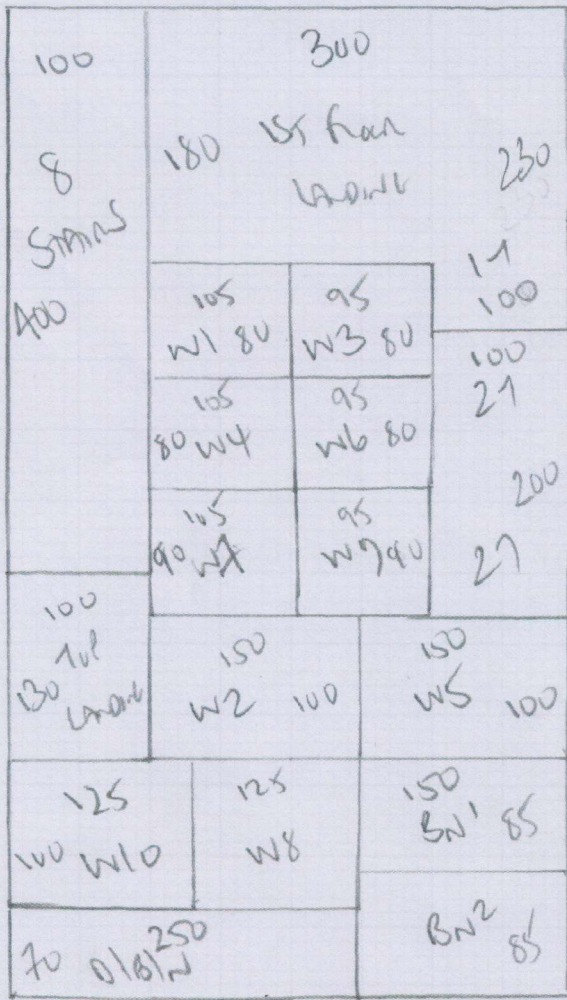 100
8
STAIRS
400
300
180
1ST Floor
LANDING
230
11
100
105
W1 80
95
W3 80
100
21
105
80 W4
95
W6 80
200
105
90 W7
95
W9 90
21
100
TOP
130 LANDING
150
W2 100
150
W5 100
125
100 W10
125
W8
150
BN1 85
250
70 D/B/N
BN2 85